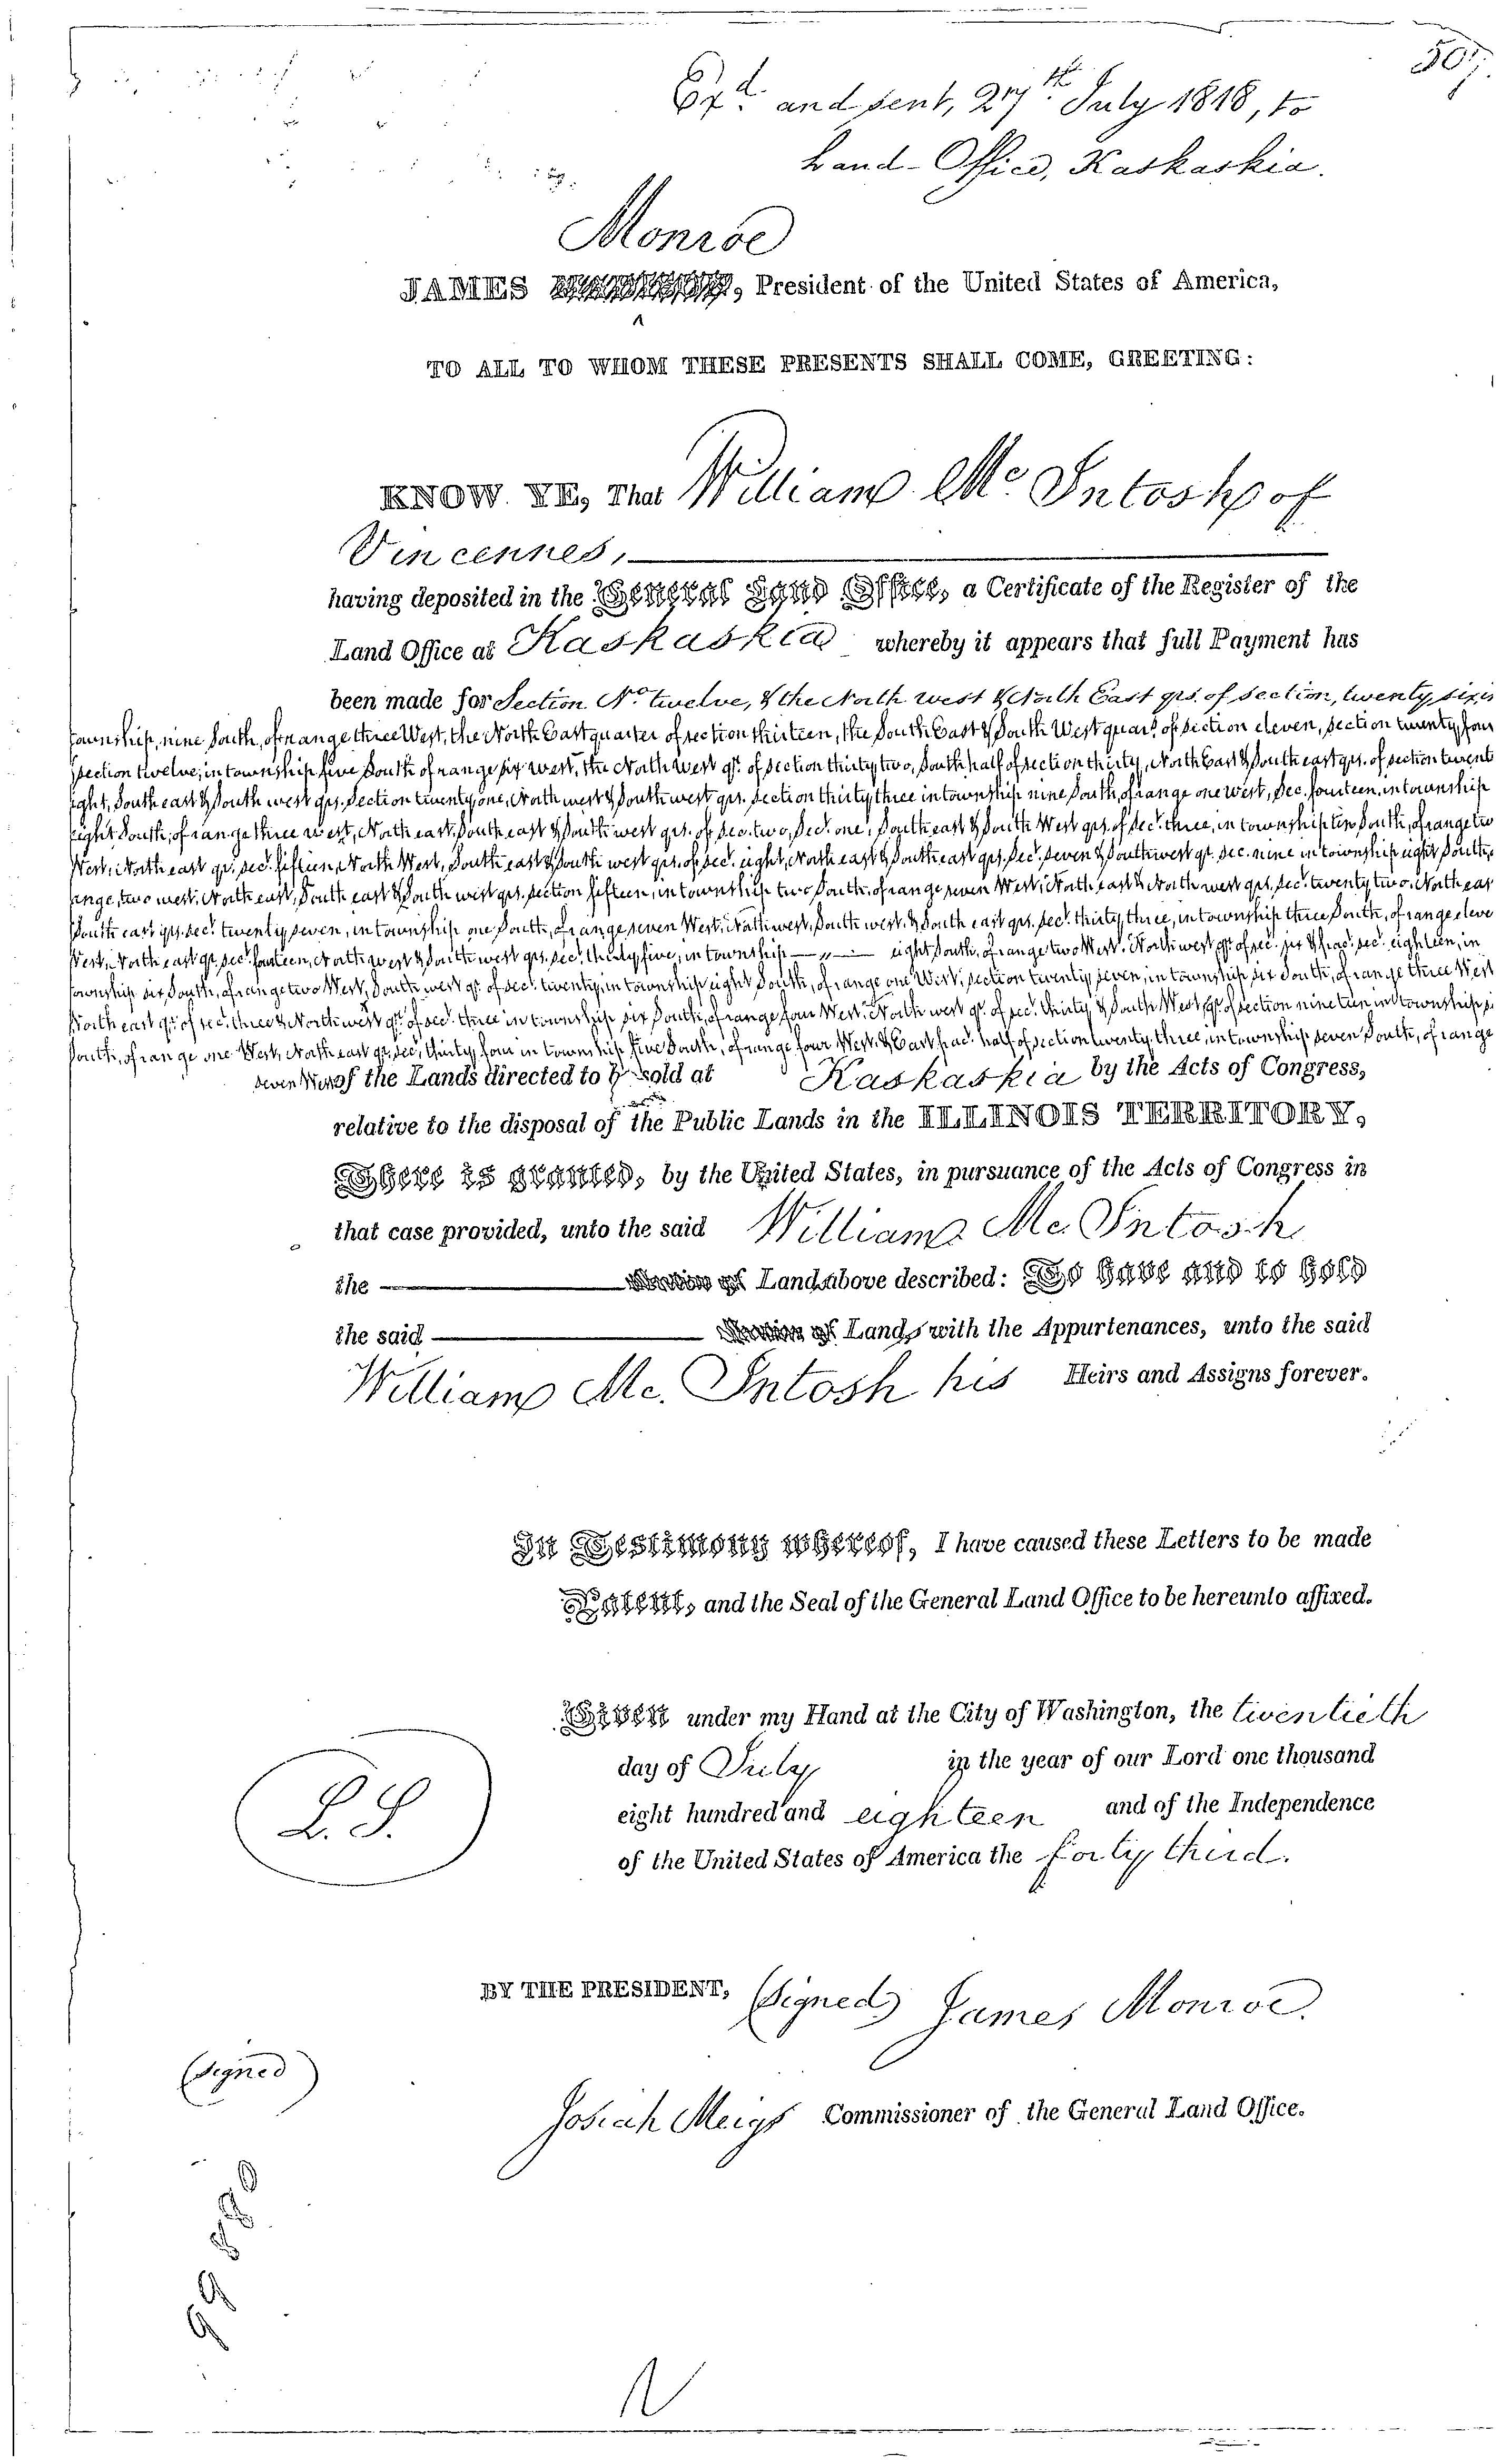 507
Exd. and sent, 27th July 1818, to
Land-Office, Kaskaskia.
Monroe
JAMES , President of the United States of America,
TO ALL TO WHOM THESE PRESENTS SHALL COME, GREETING:
KNOW YE, That William Mc. Intosh of
Vincennes,
having deposited in the General Land Office, a Certificate of the Register of the
Land Office at Kaskaskia whereby it appears that full Payment has
been made for Section No. twelve, & the North west & North East qrs. of section, twenty six, in
township, nine South, of range three West, the North East quarter of section thirteen, the South East & South West quars. of section eleven, section twenty four
section twelve, in township five South of range six west, the North West qr. of section thirty two, South half of section thirty, North East & South east qrs. of section twenty
eight, South east & South west qrs. section twenty one, North west & South west qrs. section thirty three in township nine South, of range one West, Sec. fourteen, in township
eight South, of range three west, North east, South east & South west qrs. of Sec. two, Sect. one, South east & South West qrs. of Sect. three, in township ten South, of range two
West, North east qr. sect. fifteen, North West, South east & South west qrs. of sect. eight, North east & South east qrs. Sect. seven & South west qr. sec. nine in township eight South,
range, two west, North east, South east & South west qrs. section fifteen, in township two South, of range seven West, North east & North west qrs. sect. twenty two, North east
South east qrs. sect. twenty seven, in township one South, of range seven West, North west, South west, & South east qrs. sect. thirty three, in township three South, of range eleven
West, North east qr. sect. fourteen, North west & South west qrs. sect. thirty five, in township — „ — eight South, of range two West, North west qr. of sec. six & frac. sect. eighteen, in
township six South, of range two West, South west qr. of sect. twenty, in township eight South, of range one West, section twenty seven, in township six South, of range three West
North east qr. of sec. three & North west qr. of sec. three in township six South, of range four West, North west qr. of sec. thirty & South West qr. of section nineteen in township
South, of range one West, North east qr. sect. thirty four in township five South, of range four West, & East frac. half of section twenty three, in township seven South, of range
seven West of the Lands directed to be sold at Kaskaskia by the Acts of Congress,
relative to the disposal of the Public Lands in the ILLINOIS TERRITORY,
There is granted, by the United States, in pursuance of the Acts of Congress in
that case provided, unto the said William Mc. Intosh
the Lands above described: To have and to hold
the said Lands with the Appurtenances, unto the said
William Mc. Intosh his Heirs and Assigns forever.
In Testimony whereof, I have caused these Letters to be made
Patent, and the Seal of the General Land Office to be hereunto affixed.
Given under my Hand at the City of Washington, the twentieth
day of July in the year of our Lord one thousand
eight hundred and eighteen and of the Independence
of the United States of America the forty third.
L. S.
BY THE PRESIDENT, (signed) James Monroe.
(signed)
Josiah Meigs Commissioner of the General Land Office.